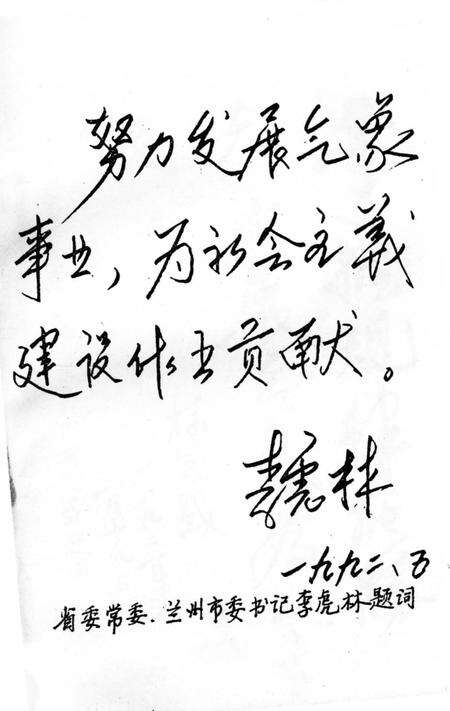 努力发展气象
事业，为社会主義
建设作出贡献。
李虎林
一九九二、五
省委常委、兰州市委书记李虎林题词